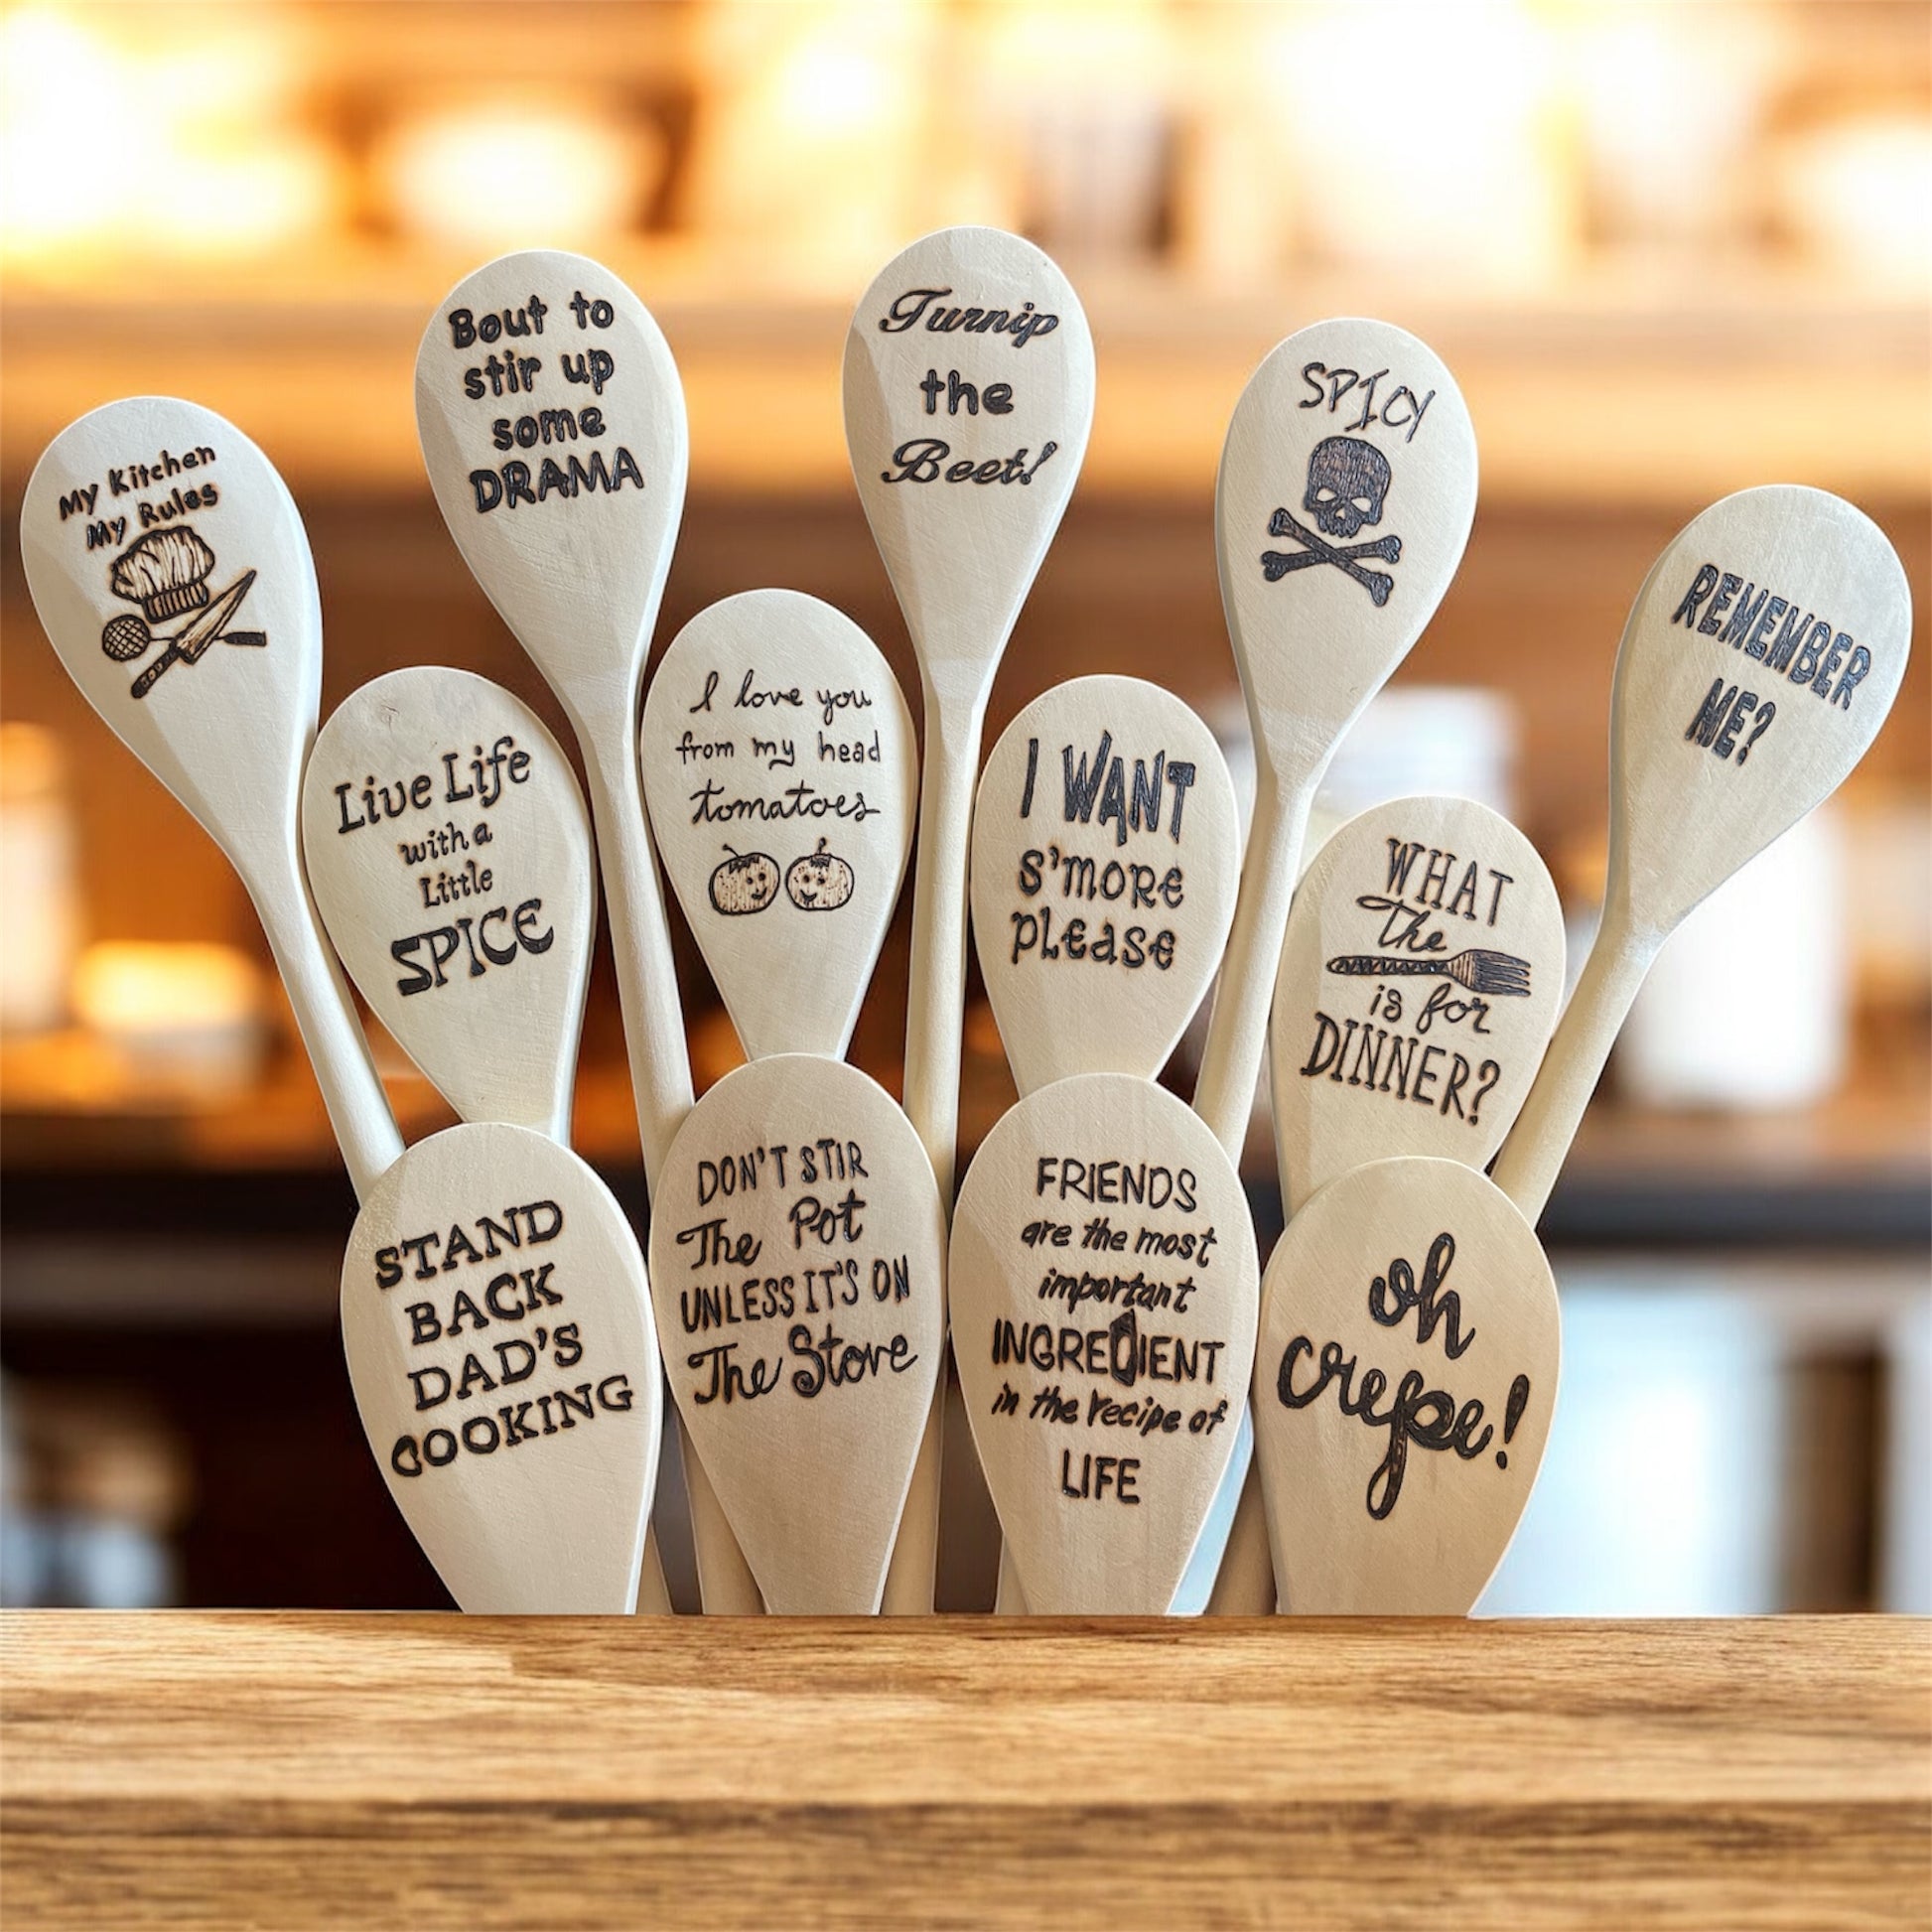 My Kitchen
My Rules
Bout to
stir up
some
DRAMA
Turnip
the
Beet!
SPICY
REMEMBER
ME?
Live Life
with a
Little
SPICE
I love you
from my head
tomatoes
I WANT
S'MORE
PLEASE
WHAT
The
is for
DINNER?
STAND
BACK
DAD'S
COOKING
DON'T STIR
The Pot
UNLESS IT'S ON
The Stove
FRIENDS
are the most
important
INGREDIENT
in the recipe of
LIFE
oh
crepe!